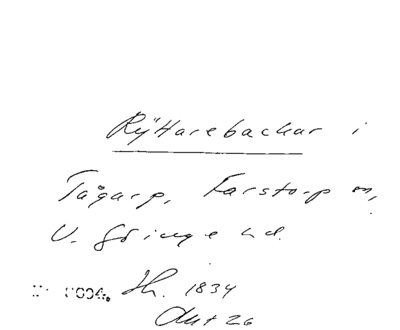 Ryttarebackar i
Tågarp, Farstorp sn,
V. Göinge hd.
Sk. 1834
Akt 26